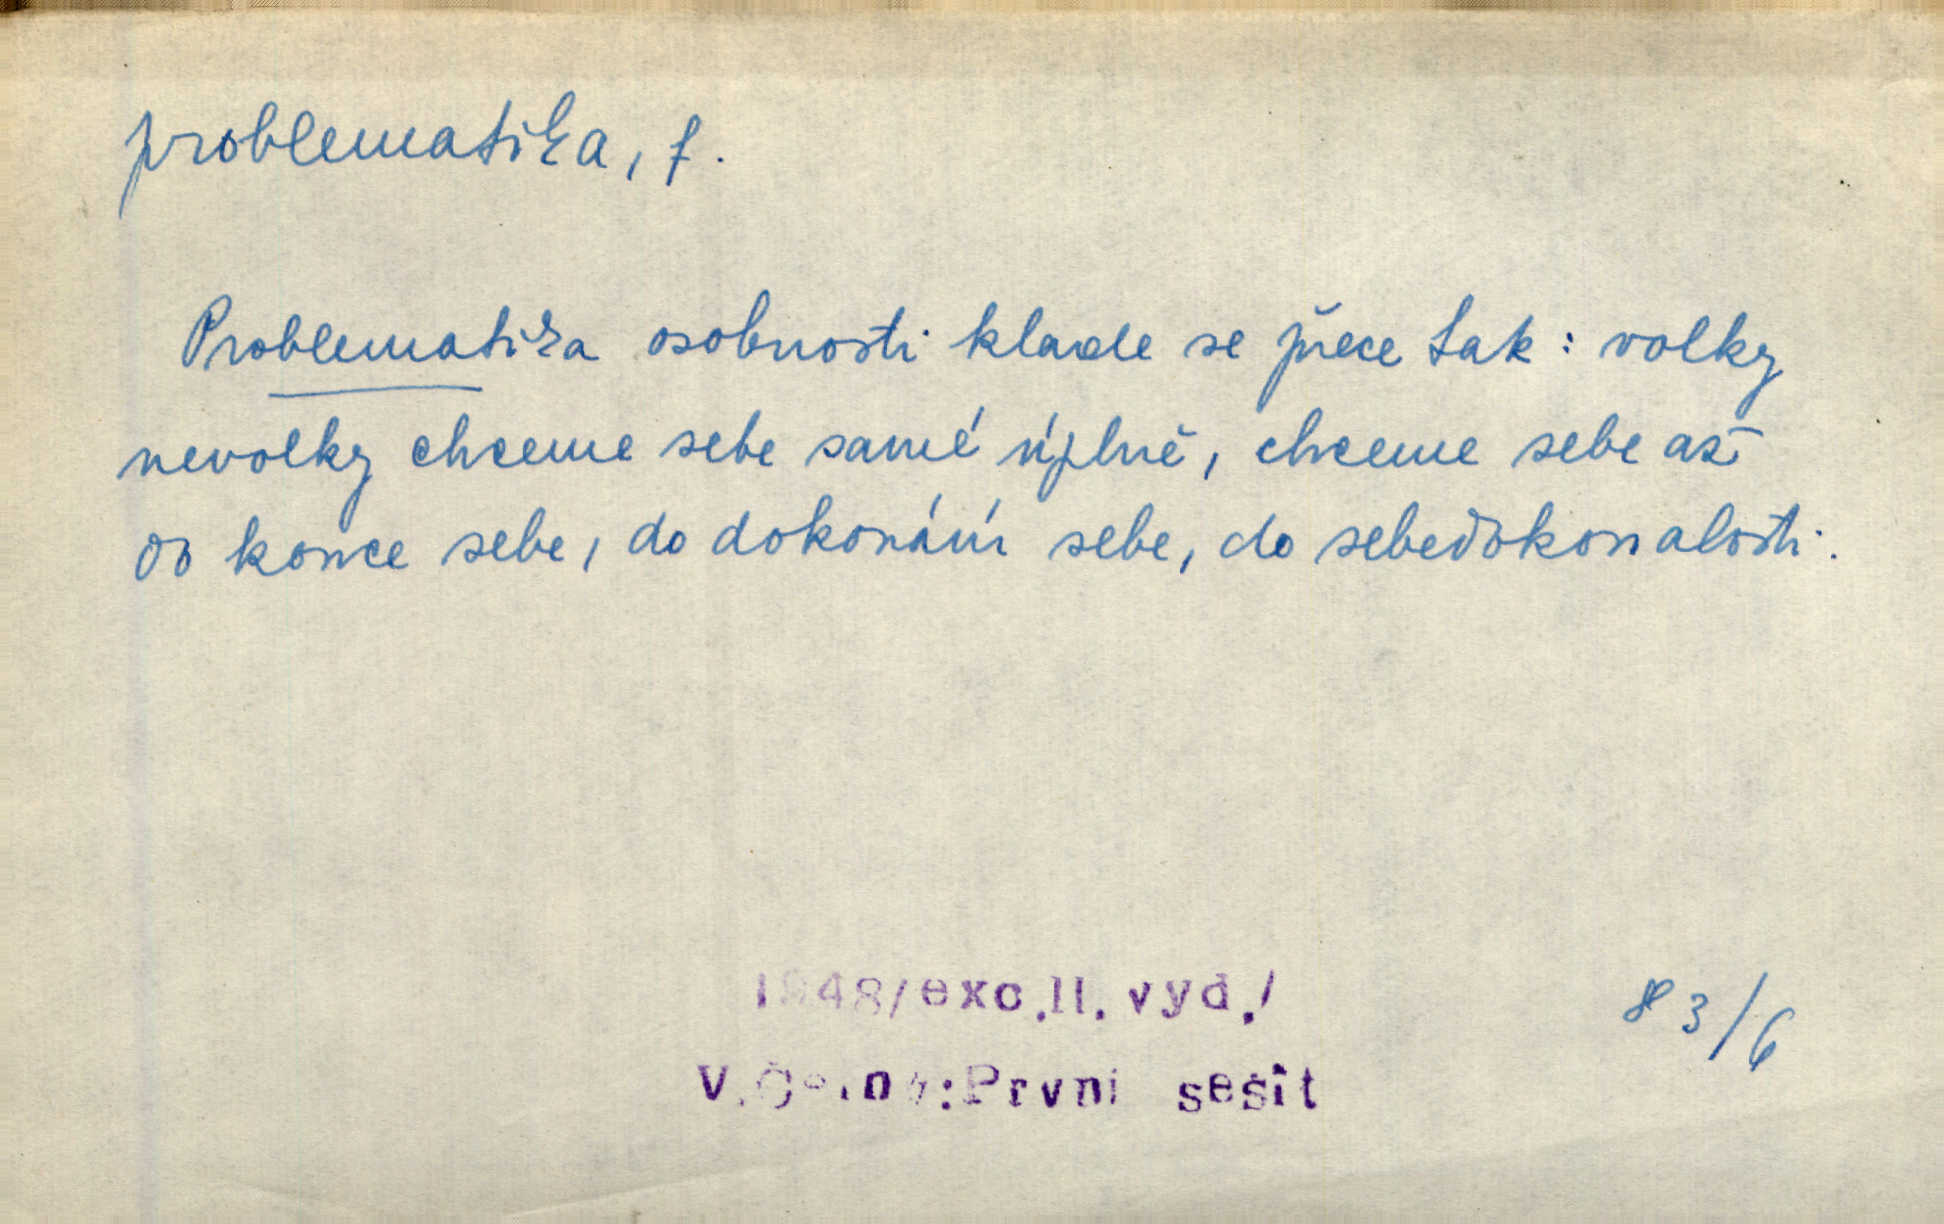 problematika, f.
Problematika osobnosti klade se přece tak: volky
nevolky chceme sebe samé úplně, chceme sebe až
do konce sebe, do dokonání sebe, do sebedokonalosti.
1948/exc.II.vyd./
83/6
V. :První sešit